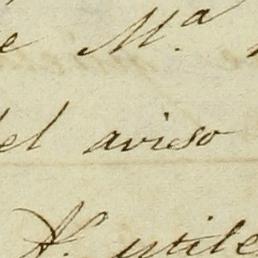 e M.a
del aviso
A. utile